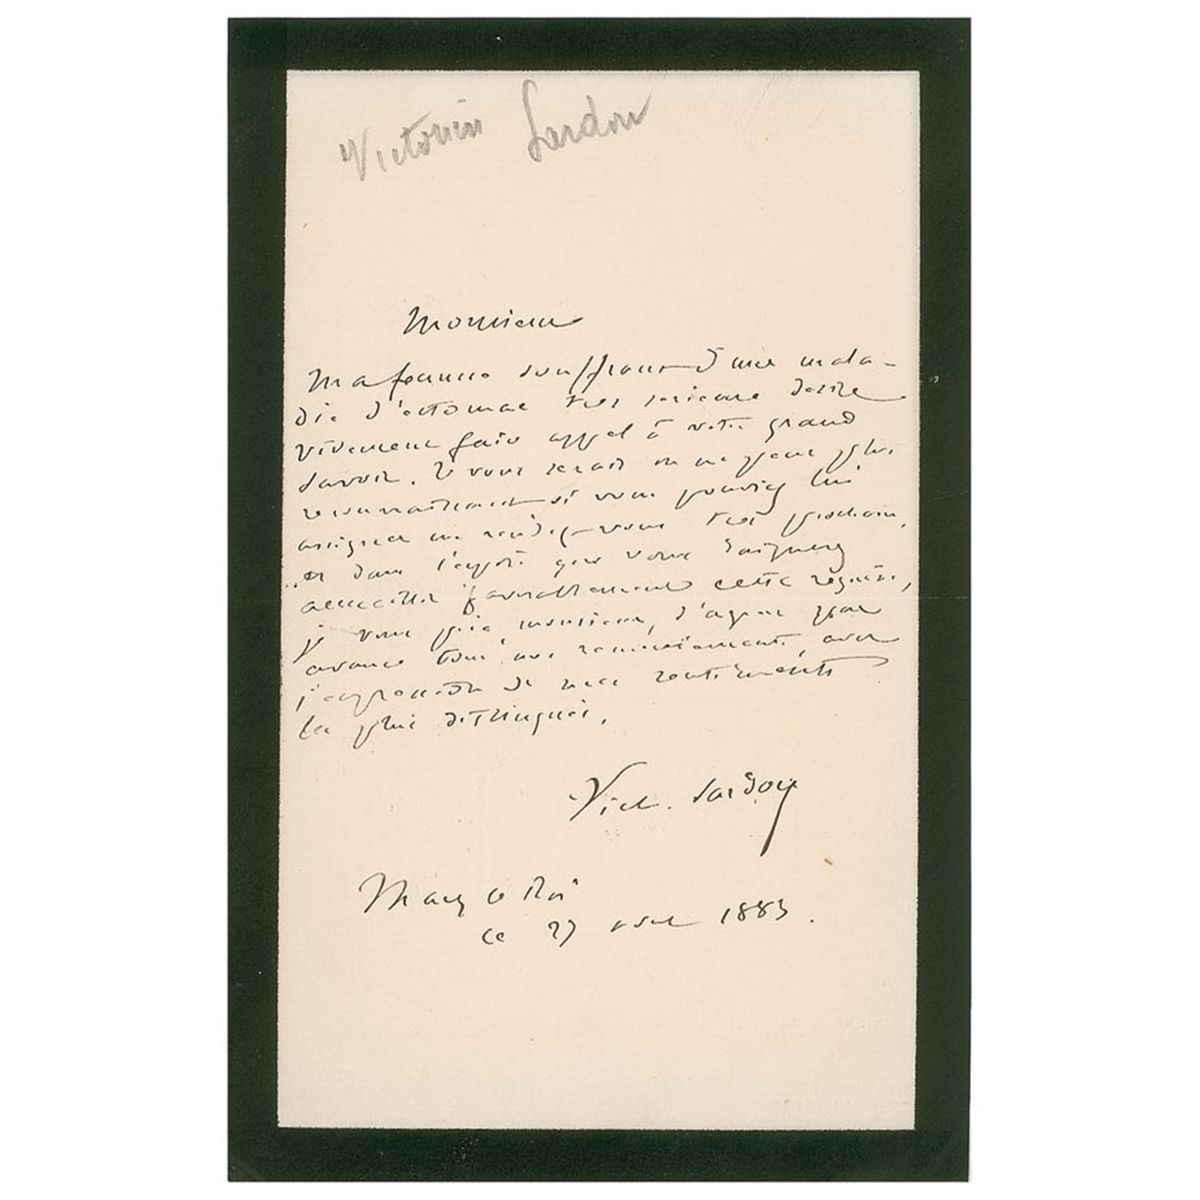 Victorien Sardou
Monsieur
Ma femme souffrant d'une mala-
die d'estomac très sérieuse désire
vivement faire appel à votre grand
savoir. Je vous serais on ne peut plus
reconnaissant si vous pouviez lui
assigner un rendez-vous très prochain,
et dans l'espoir que vous daignerez
accueillir favorablement cette requête,
je vous prie, monsieur, d'agréer par
avance tous mes remerciements, avec
l'expression de mes sentiments
les plus distingués.
Vict. Sardou
Marly le Roi
le 27 1883.